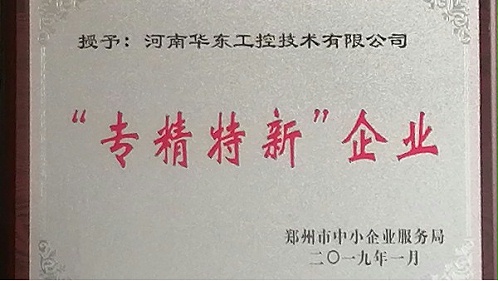 授予：河南华东工控技术有限公司
“专精特新”企业
郑州市中小企业服务局
二〇一九年一月